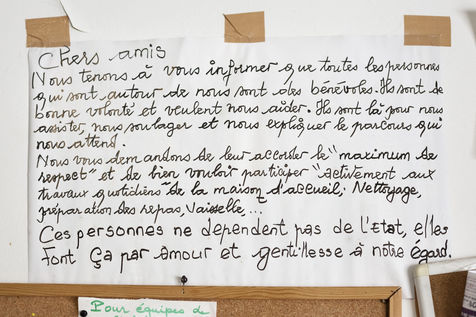 Chers amis
Nous tenons à vous informer que toutes les personnes
qui sont autour de nous sont des bénévoles. Ils sont de
bonne volonté et veulent nous aider. Ils sont là pour nous
assister, nous soulager et nous expliquer le parcours qui
nous attend.
Nous vous demandons de leur accorder le "maximum de
respect" et de bien vouloir participer "activement aux
travaux quotidiens" de la maison d'accueil; Nettoyage,
préparation des repas, Vaisselle,...
Ces personnes ne dependent pas de l'Etat, elles
Font ça par amour et gentillesse à notre égard.
Pour équipes de